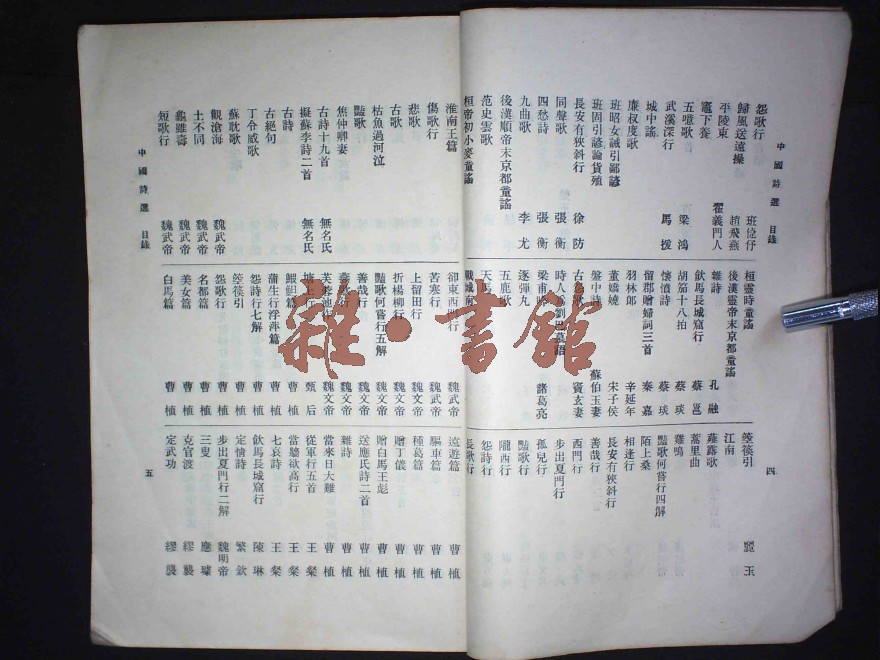 中國詩選 目錄
怨歌行 班倢伃
歸風送遠操 趙飛燕
平陵東 翟義門人
竈下養
五噫歌 梁鴻
武溪深行 馬援
城中謠
廉叔度歌
班昭女誡引鄙諺
班固引諺論貨殖
長安有狹斜行 徐防
同聲歌 張衡
四愁詩 張衡
九曲歌 李尤
後漢順帝末京都童謠
范史雲歌
桓帝初小麥童謠
桓靈時童謠
後漢靈帝末京都童謠
雜詩 孔融
飲馬長城窟行 蔡邕
胡笳十八拍 蔡琰
憤詩 蔡琰
留郡贈婦詞三首 秦嘉
羽林郎 辛延年
董嬌嬈 宋子侯
盤中詩 蘇伯玉妻
古怨歌 竇玄妻
時人 語
梁甫吟 諸葛亮
逐彈丸
五鹿歌
天馬
戰城南
箜篌引 麗玉
江南
薤露歌
蒿里曲
雞鳴
豔歌何嘗行四解
陌上桑
相逢行
長安有狹斜行
善哉行
西門行
步出夏門行
孤兒行
豔歌行
隴西行
怨詩行
長歌行
四
淮南王篇
傷歌行
悲歌
古歌
枯魚過河泣
豔歌
焦仲卿妻
古詩十九首 無名氏
擬蘇李詩二首 無名氏
古詩
古絕句
丁令威歌
蘇耽歌
觀滄海 魏武帝
土不同 魏武帝
龜雖壽 魏武帝
短歌行 魏武帝
卻東西門行 魏武帝
苦寒行 魏武帝
上留田行 魏文帝
折楊柳行 魏文帝
豔歌何嘗行五解 魏文帝
善哉行 魏文帝
燕歌行 魏文帝
芙蓉池作 魏文帝
塘上行 甄后
鰕䱇篇 曹植
蒲生行浮萍篇 曹植
怨詩行七解 曹植
箜篌引 曹植
怨歌行 曹植
名都篇 曹植
美女篇 曹植
白馬篇 曹植
遠遊篇 曹植
驅車篇 曹植
種葛篇 曹植
贈丁儀 曹植
贈白馬王彪 曹植
送應氏詩二首 曹植
雜詩 曹植
當來日大難 曹植
從軍行五首 王粲
當牆欲高行 王粲
七哀詩 王粲
飲馬長城窟行 陳琳
定情詩 繁欽
步出夏門行二解 魏明帝
三叟 應璩
克官渡 繆襲
定武功 繆襲
中國詩選 目錄
五
雜·書館